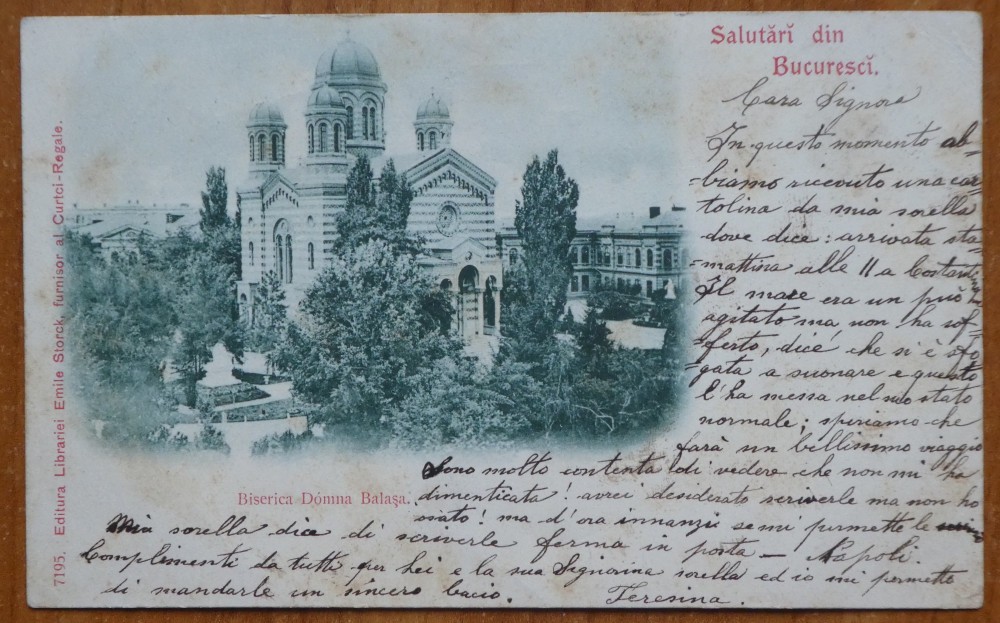 Salutărĭ din
Bucurescĭ.
Cara Signora
In questo momento ab-
-biamo ricevuto una car-
-tolina da mia sorella
dove dice: arrivata sta-
-mattina alle 11 a Costan
Il mare era un può
agitato ma, non ha sof-
-ferto, dice che si è sfo
gata a suonare e questo
l'ha messa nel suo stato
normale; speriamo che
farà un bellissimo viaggio
Sono molto contenta di vedere che non mi ha
dimenticata! avrei desiderato scriverle ma non ho
osato! ma d'ora innanzi se mi permette le
Mia sorella dice di scriverle ferma in posta — Napoli.
Complimenti da tutti per lei e la sua Signorina sorella ed io mi permetto
di mandarle un sincero bacio. Teresina.
Biserica Dómna Balaşa.
7195. Editura Librariei Emile Storck, furnisor al Curtci-Regale.